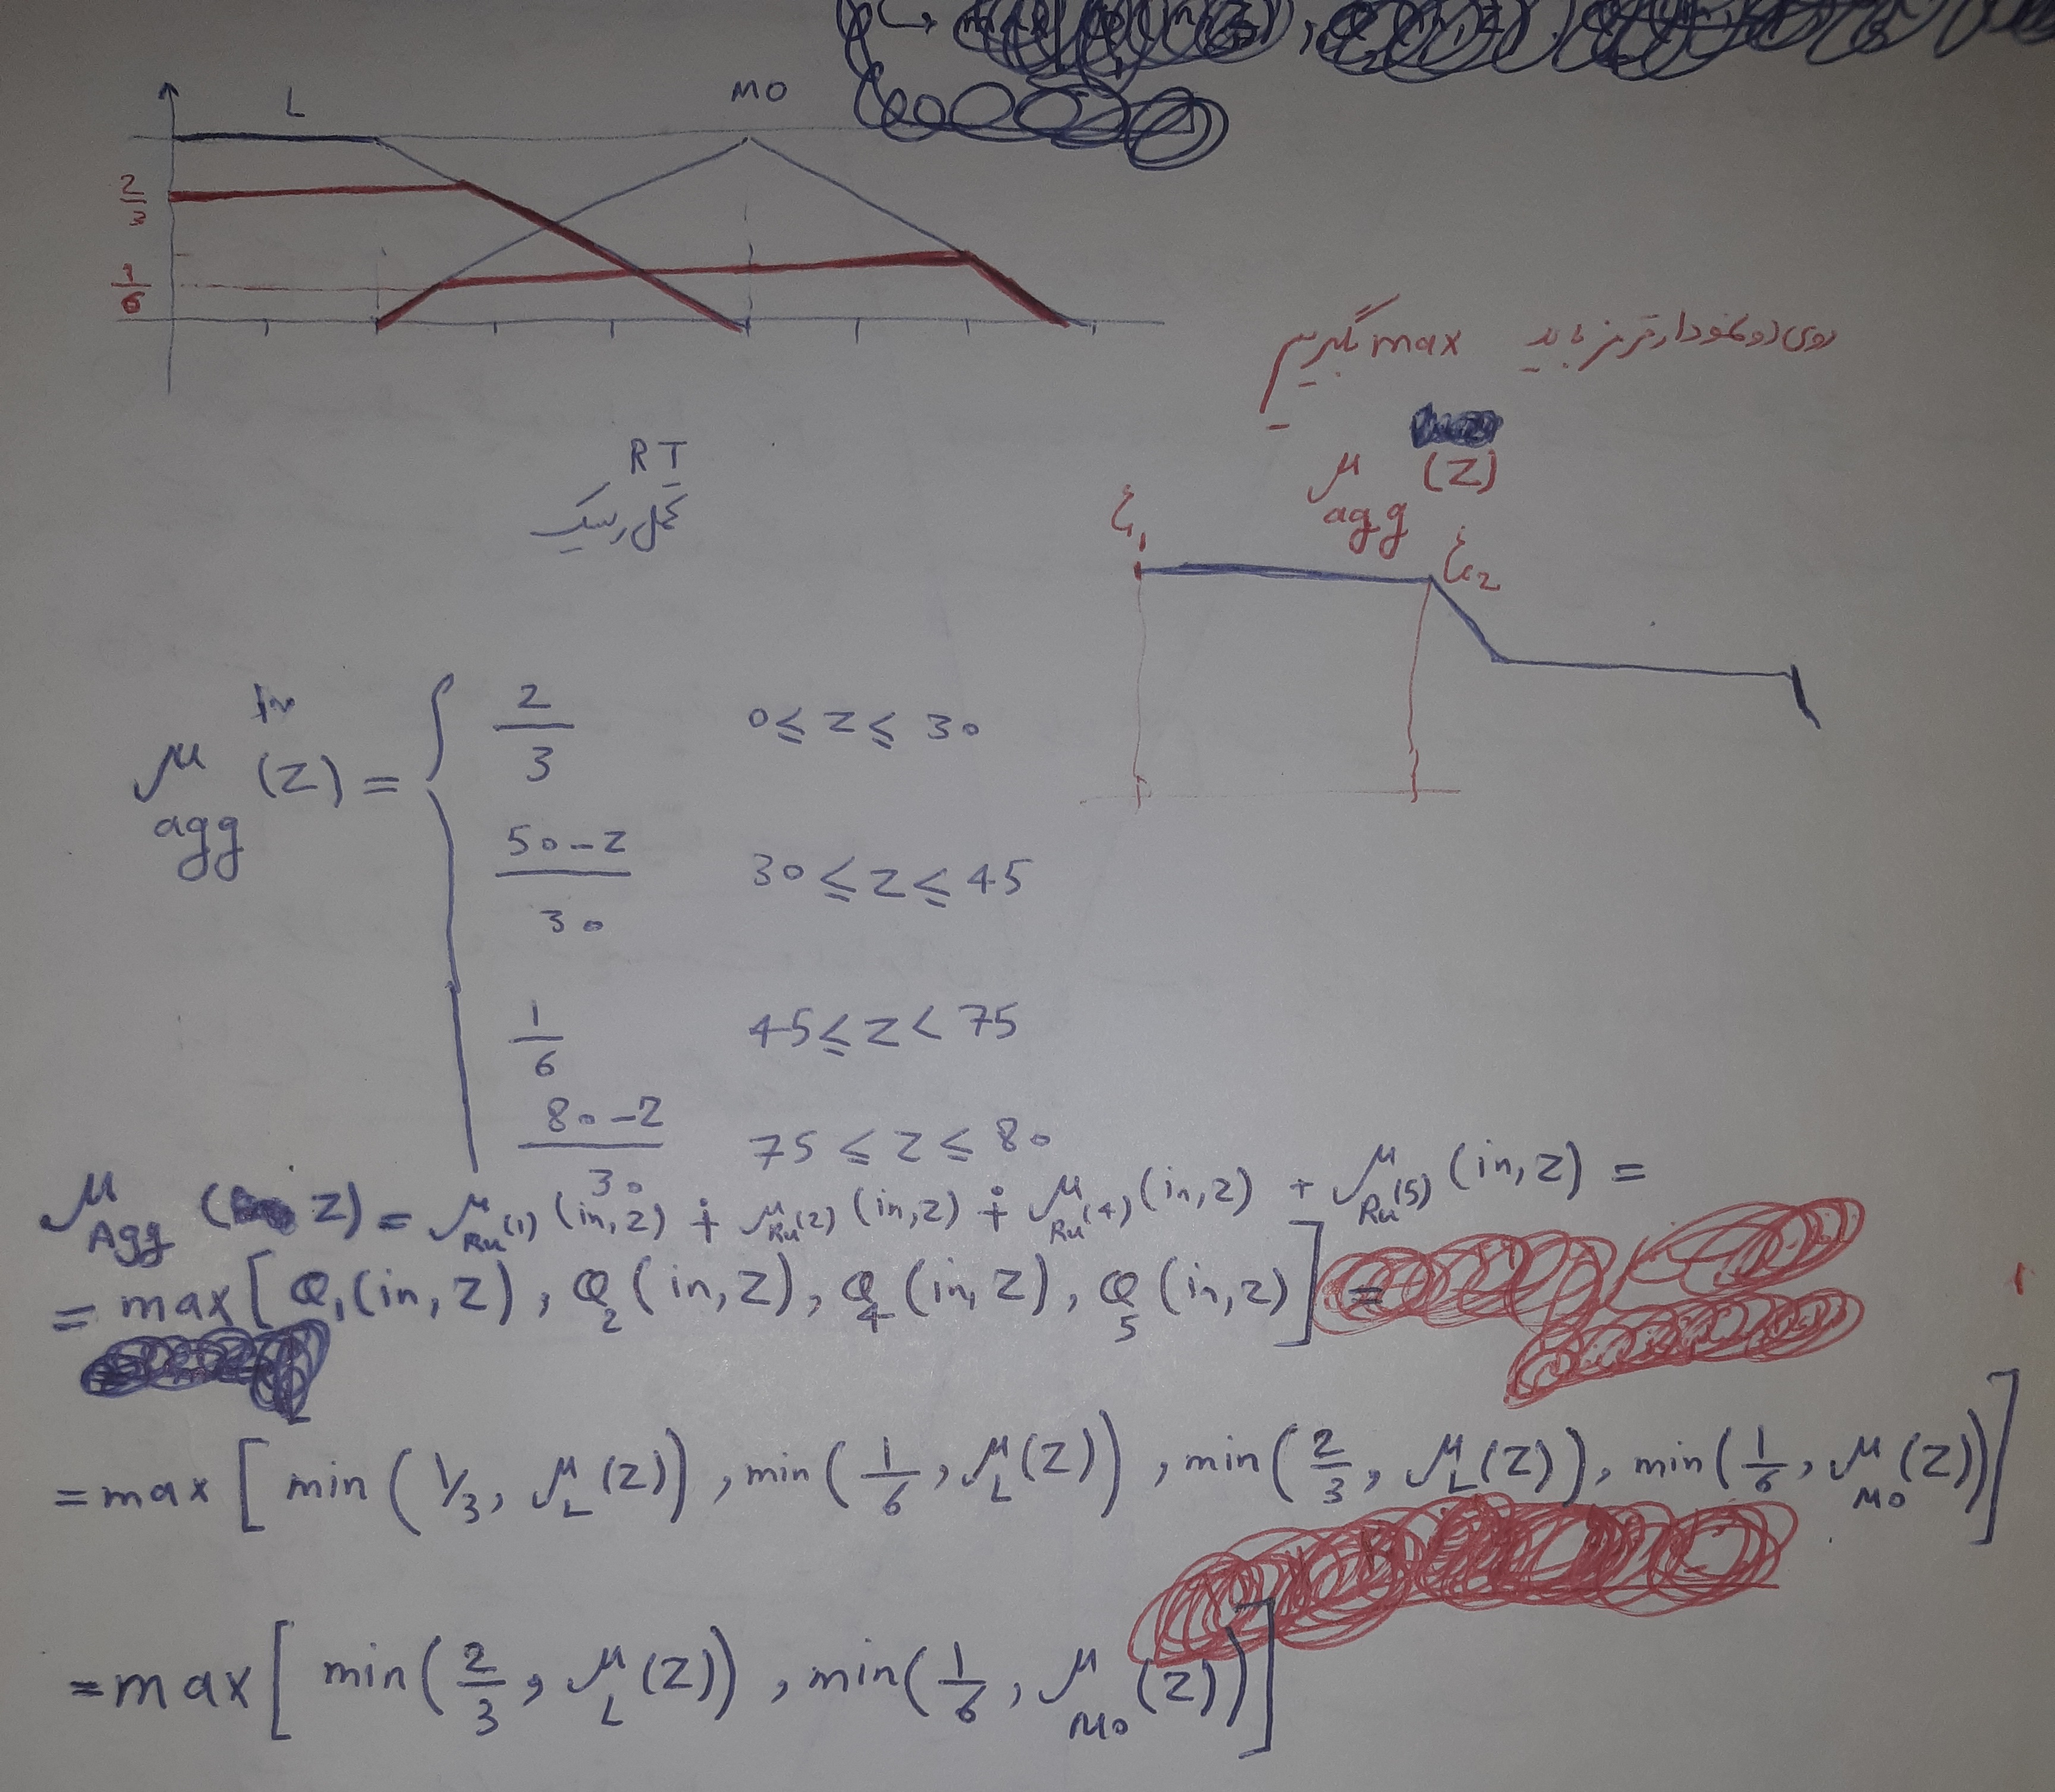 L MO
2/3
1/6
روی دو نمودار قرمز باید max گیریم
RT
تحمل ریسک
μ_agg (z)
ξ₁ ξ₂
μ_agg^in (z) = {
2/3 0 ≤ z ≤ 30
50-z/30 30 ≤ z ≤ 45
1/6 45 ≤ z < 75
80-z/30 75 ≤ z ≤ 80
μ_Agg (z) = μ_Ru(1) (in, z) ∔ μ_Ru(2) (in, z) ∔ μ_Ru(4) (in, z) + μ_Ru(5) (in, z) =
= max [ Q₁ (in, z), Q₂ (in, z), Q₄ (in, z), Q₅ (in, z) ] =
= max [ min ( 1/3, μ_L (z) ), min ( 1/6, μ_L (z) ), min ( 2/3, μ_L (z) ), min ( 1/6, μ_MO (z) ) ]
= max [ min ( 2/3, μ_L (z) ), min ( 1/6, μ_MO (z) ) ]